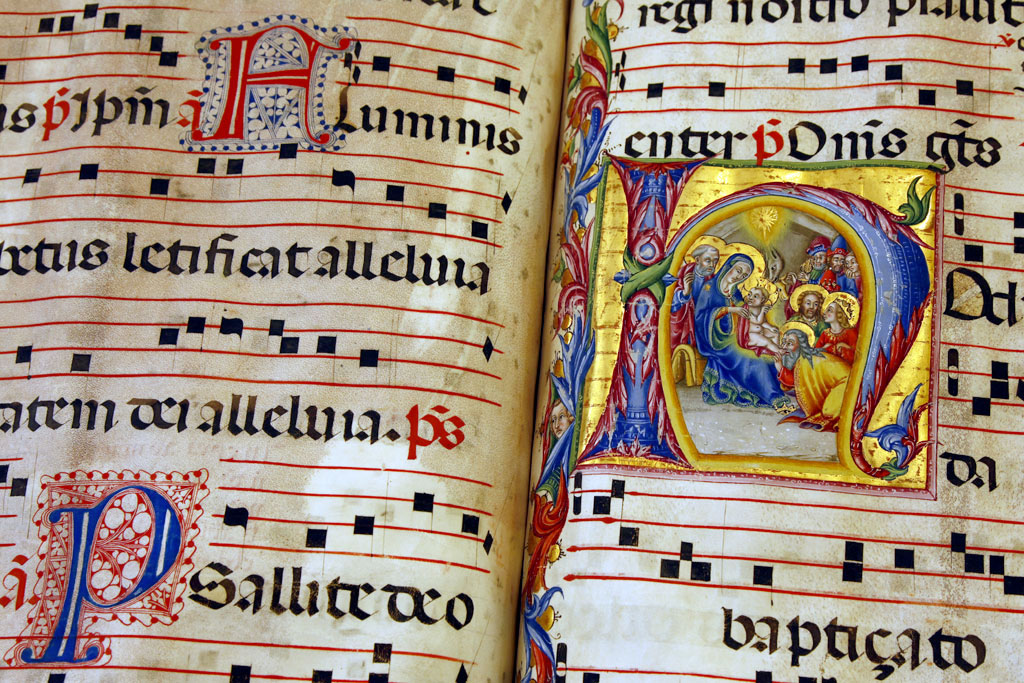 p̄ Ip̄m ā Fluminis
petus letificat alleluia
tatem dei alleluia. p̄s
Psallite deo
regi nostro psallit
enter p̄ Om̄s gt̄s
H Odi
da
baptiçato